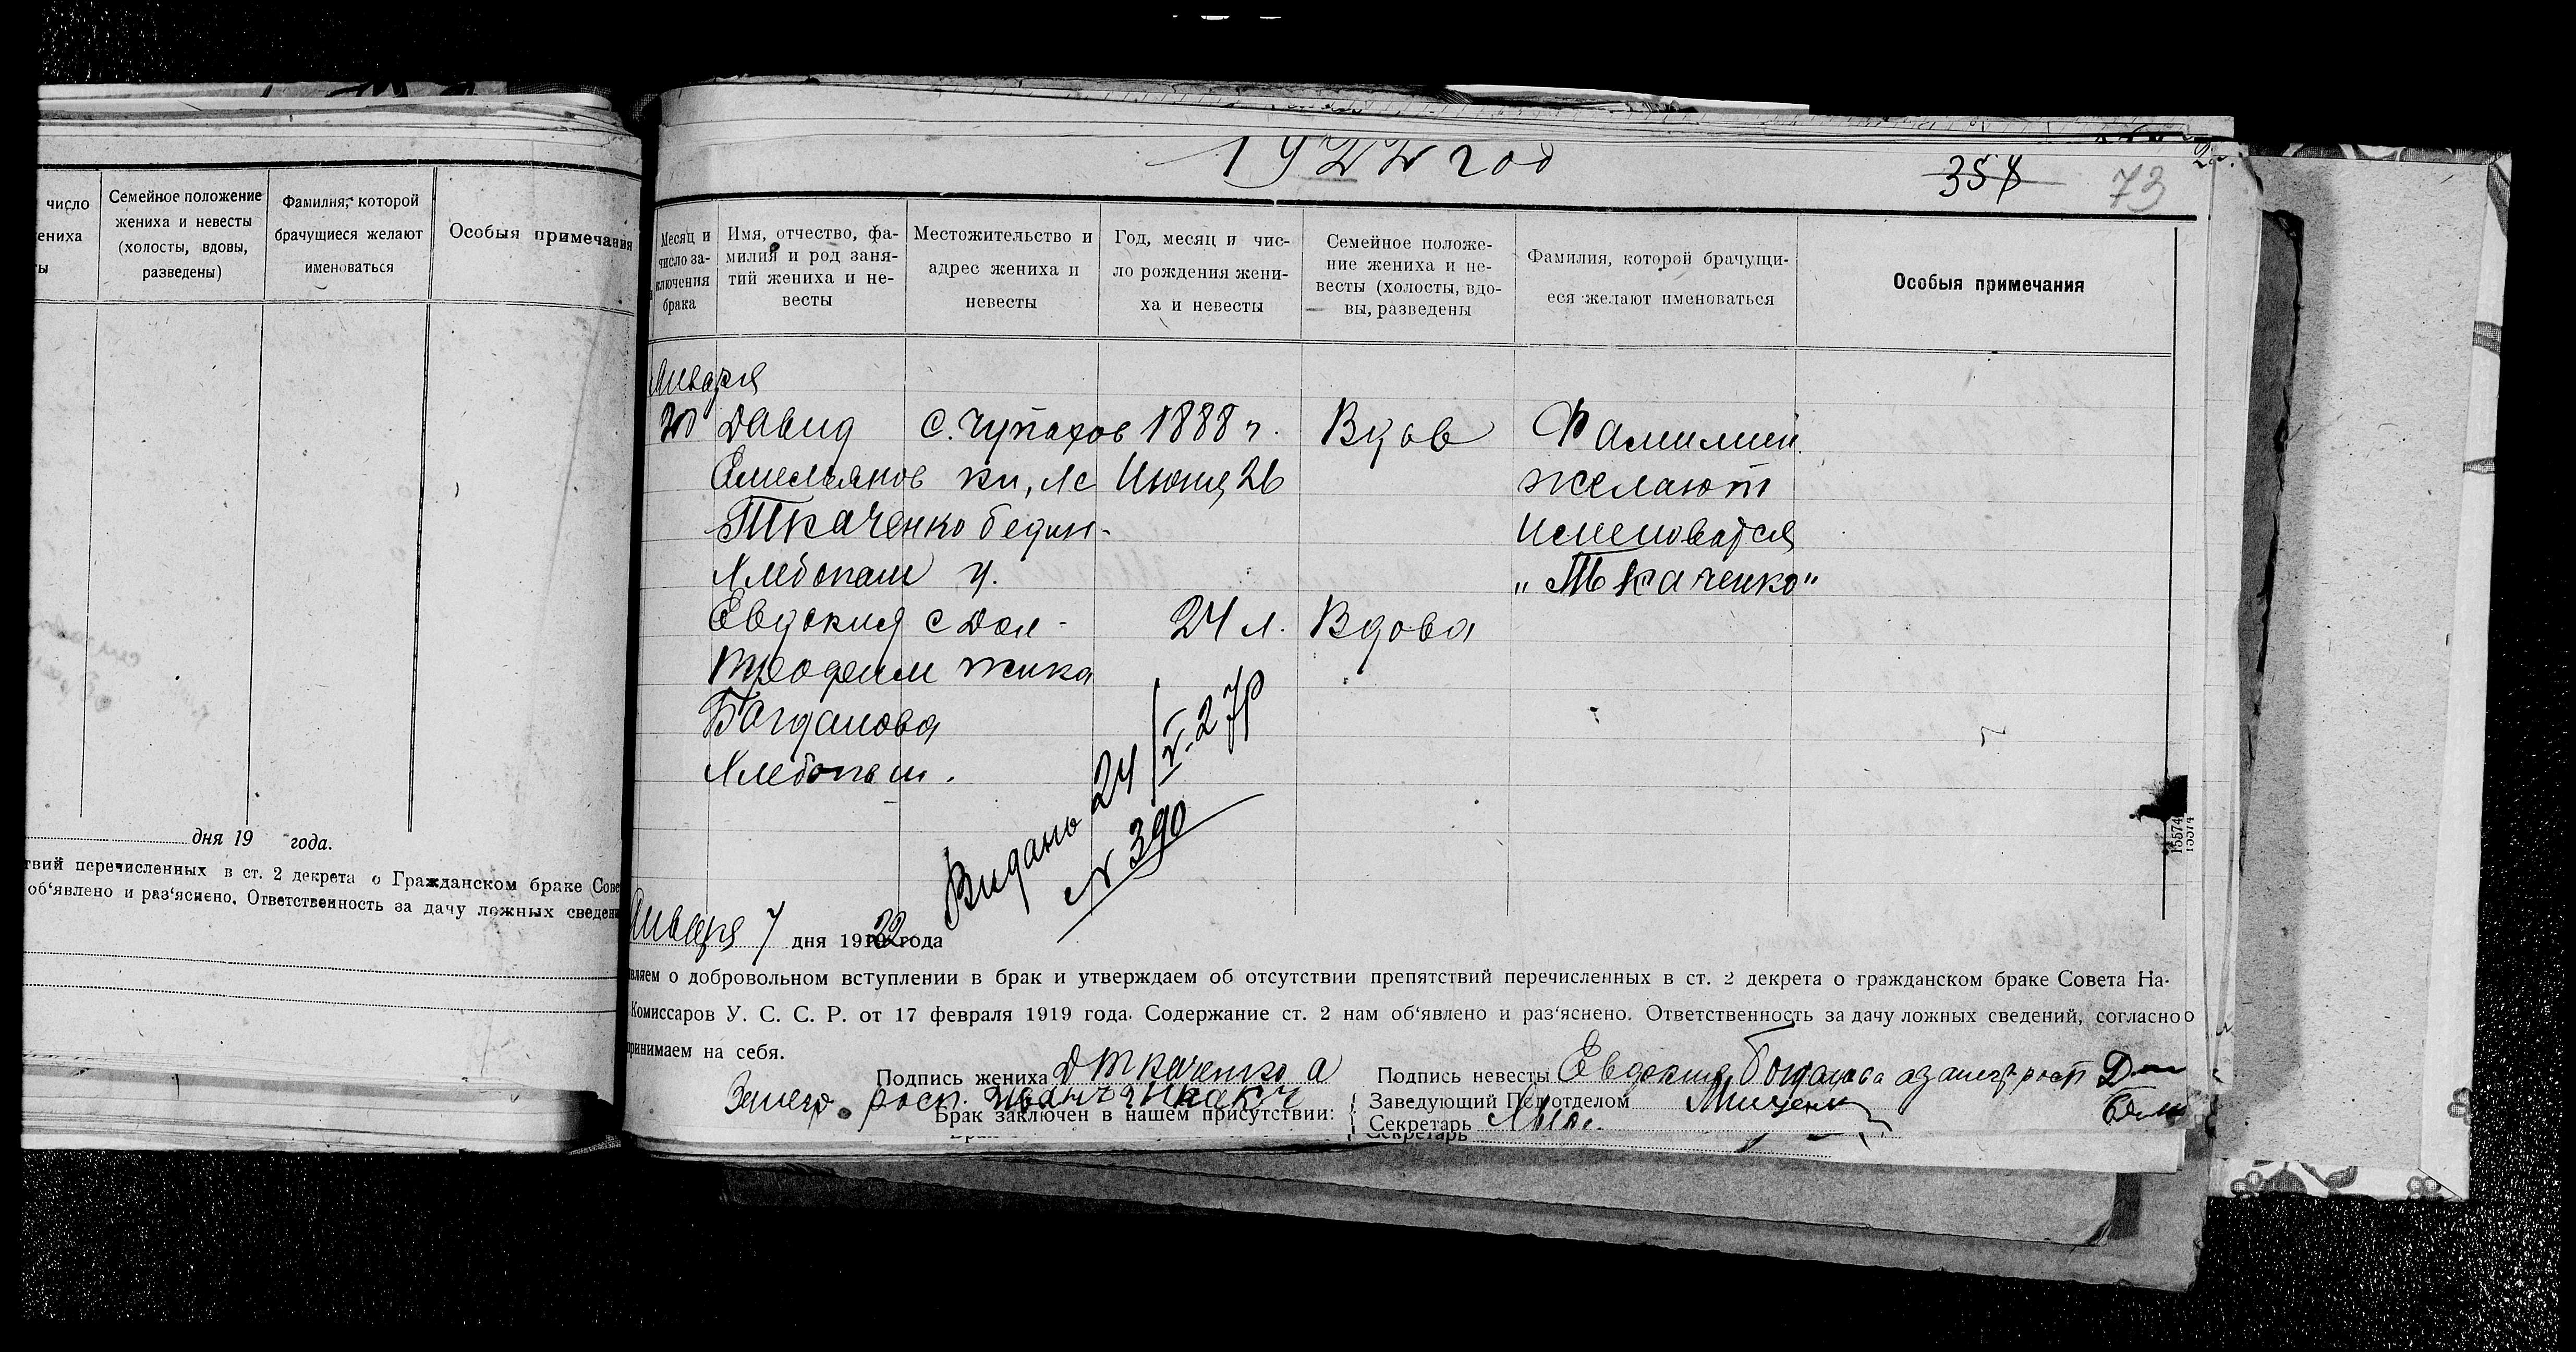 число
ениха
ты
Семейное положение
жениха и невесты
(холосты, вдовы,
разведены)
Фамилия, которой
брачущиеся желают
именоваться
Особыя примечания
дня 19 года.
твий перечисленных в ст. 2 декрета о Гражданском браке Сове
об‘явлено и раз‘яснено. Ответственность за дачу ложных сведени
1922 год
358
73
Месяц и
число за-
ключения
брака
Имя, отчество, фа-
милия и род заня-
тий жениха и не-
весты
Местожительство и
адрес жениха и
невесты
Год, месяц и чис-
ло рождения жени-
ха и невесты
Семейное положе-
ние жениха и не-
весты (холосты, вдо-
вы, разведены
Фамилия, которой брачущи-
еся желают именоваться
Особыя примечания
Января
Давид с. Чупахов 1888 г. Вдов Фамилией
Емельянов Июня 26 желают
Ткаченко бедин- именоватся
Хлебопаш ц. "Ткаченко"
Евдокия с Дол- 24 л. Вдова
жика
Багданова
Хлебопаш.
Видано 24/V-27р
№ 390
Января 7 дня 1922 года
вляем о добровольном вступлении в брак и утверждаем об отсутствии препятствий перечисленных в ст. 2 декрета о гражданском браке Совета На-
Комиссаров У. С. С. Р. от 17 февраля 1919 года. Содержание ст. 2 нам об‘явлено и раз‘яснено. Ответственность за дачу ложных сведений, согласно
принимаем на себя.
Подпись жениха Д Ткаченко а
Подпись невесты Евдокия Богданова
росп.
Брак заключен в нашем присутствии:
Заведующий Подотделом
Секретарь
Секретарь
15574